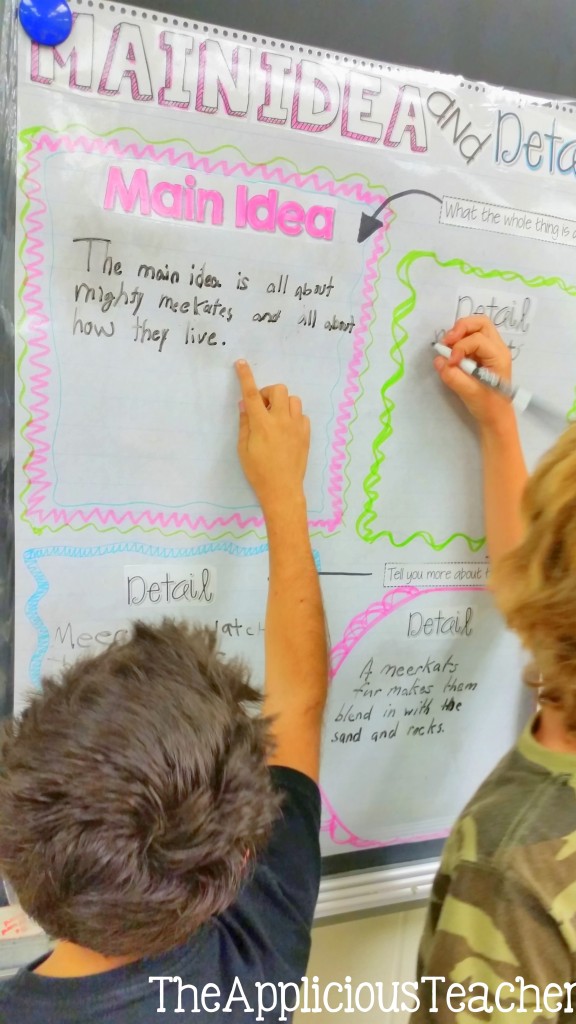 MAIN IDEA and Deta
Main Idea
What the whole thing is a
The main idea is all about
mighty meekates and all about
how they live.
Detail
Tell you more about
Detail
Detail
A meerkats
fur makes them
blend in with the
sand and rocks.
TheAppliciousTeacher